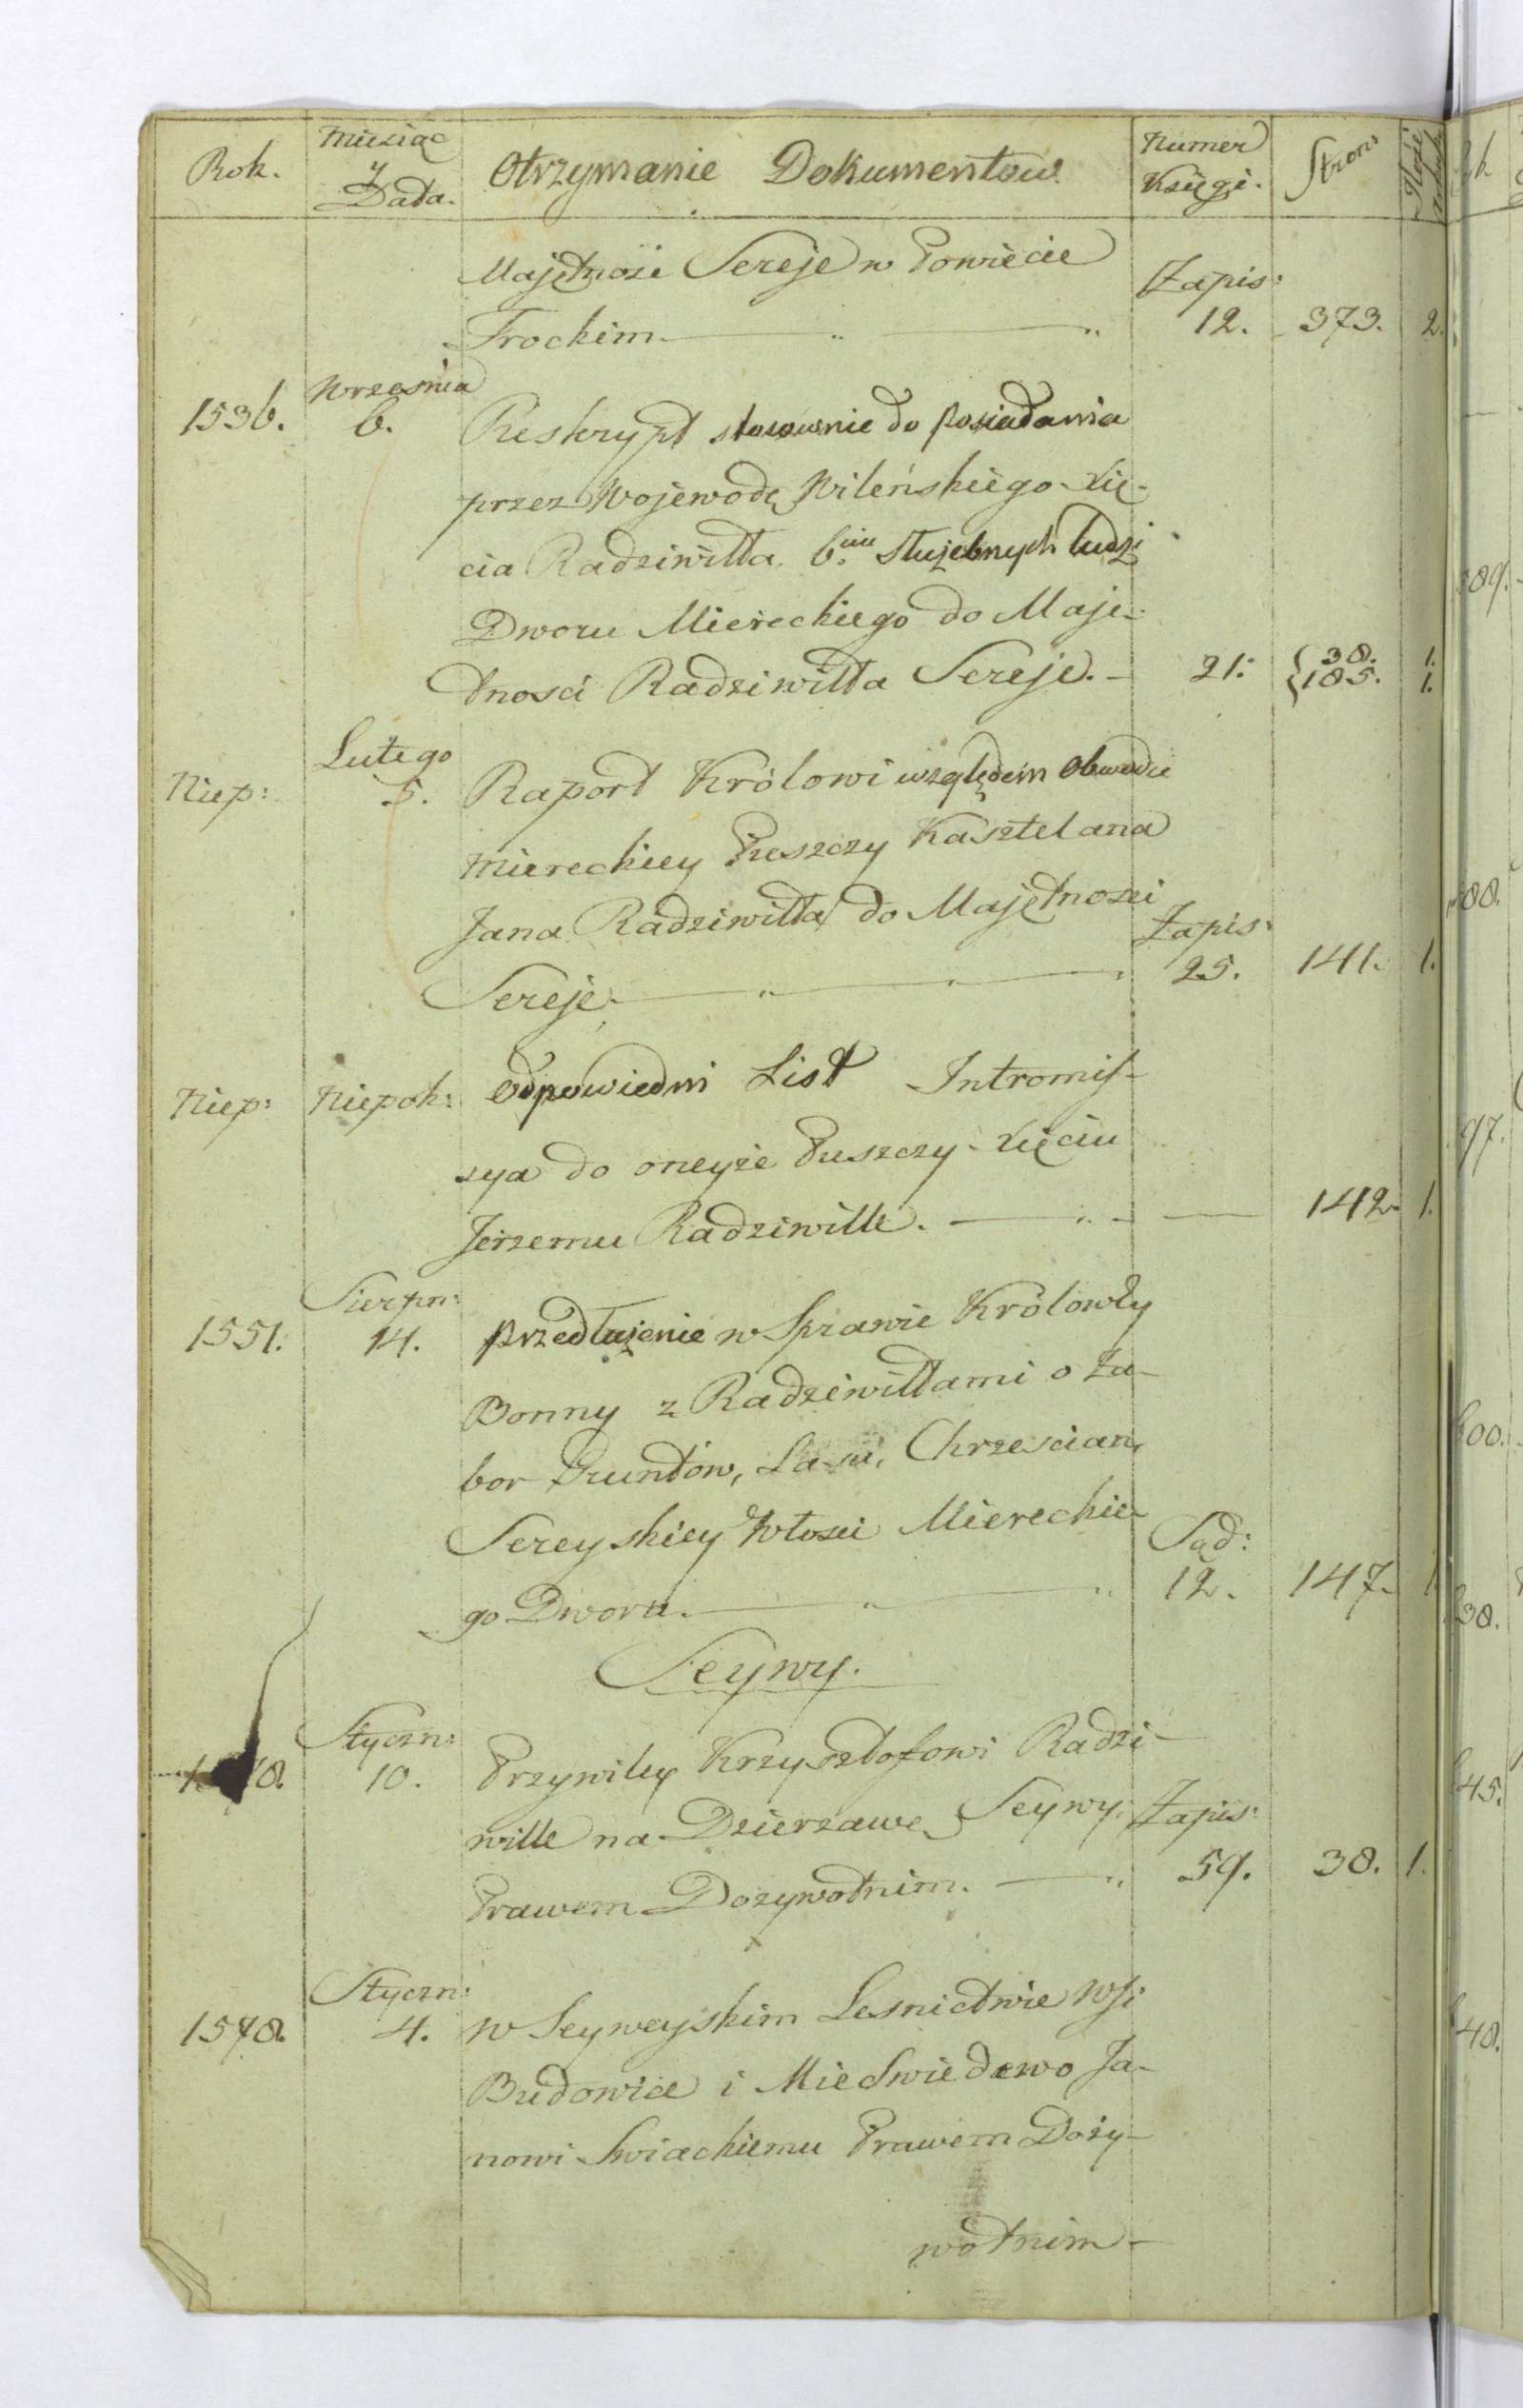 Rok. Miesiąc y Data. Otrzymanie Dokumentow. Numer Księgi. Stron:
Majętnośe Sereje w Powiecie Zapis:
Trockim. 12. 373. 2.
Września
1536. 6. Reskrypt stosownie do posiadania
przez Wojewodę Wileńskiego Xię-
cia Radziwiłła 6.ciu Służebnych ludzi
Dworu Miereckiego do Maję-
tnosci Radziwiłła Sereje. 21. { 38. 1.
185. 1.
Lutego
Niep: 5. Raport Królowi względem Obwodu
Miereckiey Puszczy Kasztelana
Jana Radziwiłła do Majętnosci Zapis:
Sereje. 25. 141. 1.
Niep: Niepok: Odpowiedni List Intromis-
sya do oneyże Puszczy Xięciu
Jerzemu Radziwille. 142. 1.
Sierpn:
1551. 14. przedłużenie w Sprawie Królowły
Bonny z Radziwiłłami o Za-
bor Gruntów, Lasu, Chrzescian,
Sereyskiey Włosci Mierechie- Sąd:
go Dworu. 12. 147. 1
Seywy.
Styczn:
10. Przywiley Krzysztofowi Radzi-
wille na Dzierzawę Seywy. Zapis:
Prawem Dozywotnim. 59. 38. 1.
Styczn:
1578. 4. w Seyweyskim Lesnictwie Wsi
Budowice i Miedwiedewo Ja-
nowi Swiackiemu Prawem Doży-
wotnim
389.
88.
97.
600.
38.
45.
48.